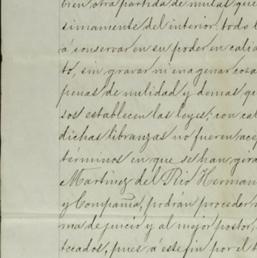 bien otra partida de mulas que
simamente del interior, todo l
á conservar en su poder en calid
to, sin gravar ni enagenar cosa
penas de nulidad y demas q
sos establecen las leyes; con cal
dichas libranzas no fueren ace
términos en que se han gira
Martinez del Rio Herman
y Compañia, podrán proceder
ma de juicio y al mejor postor,
teados, pues á este fin por el t